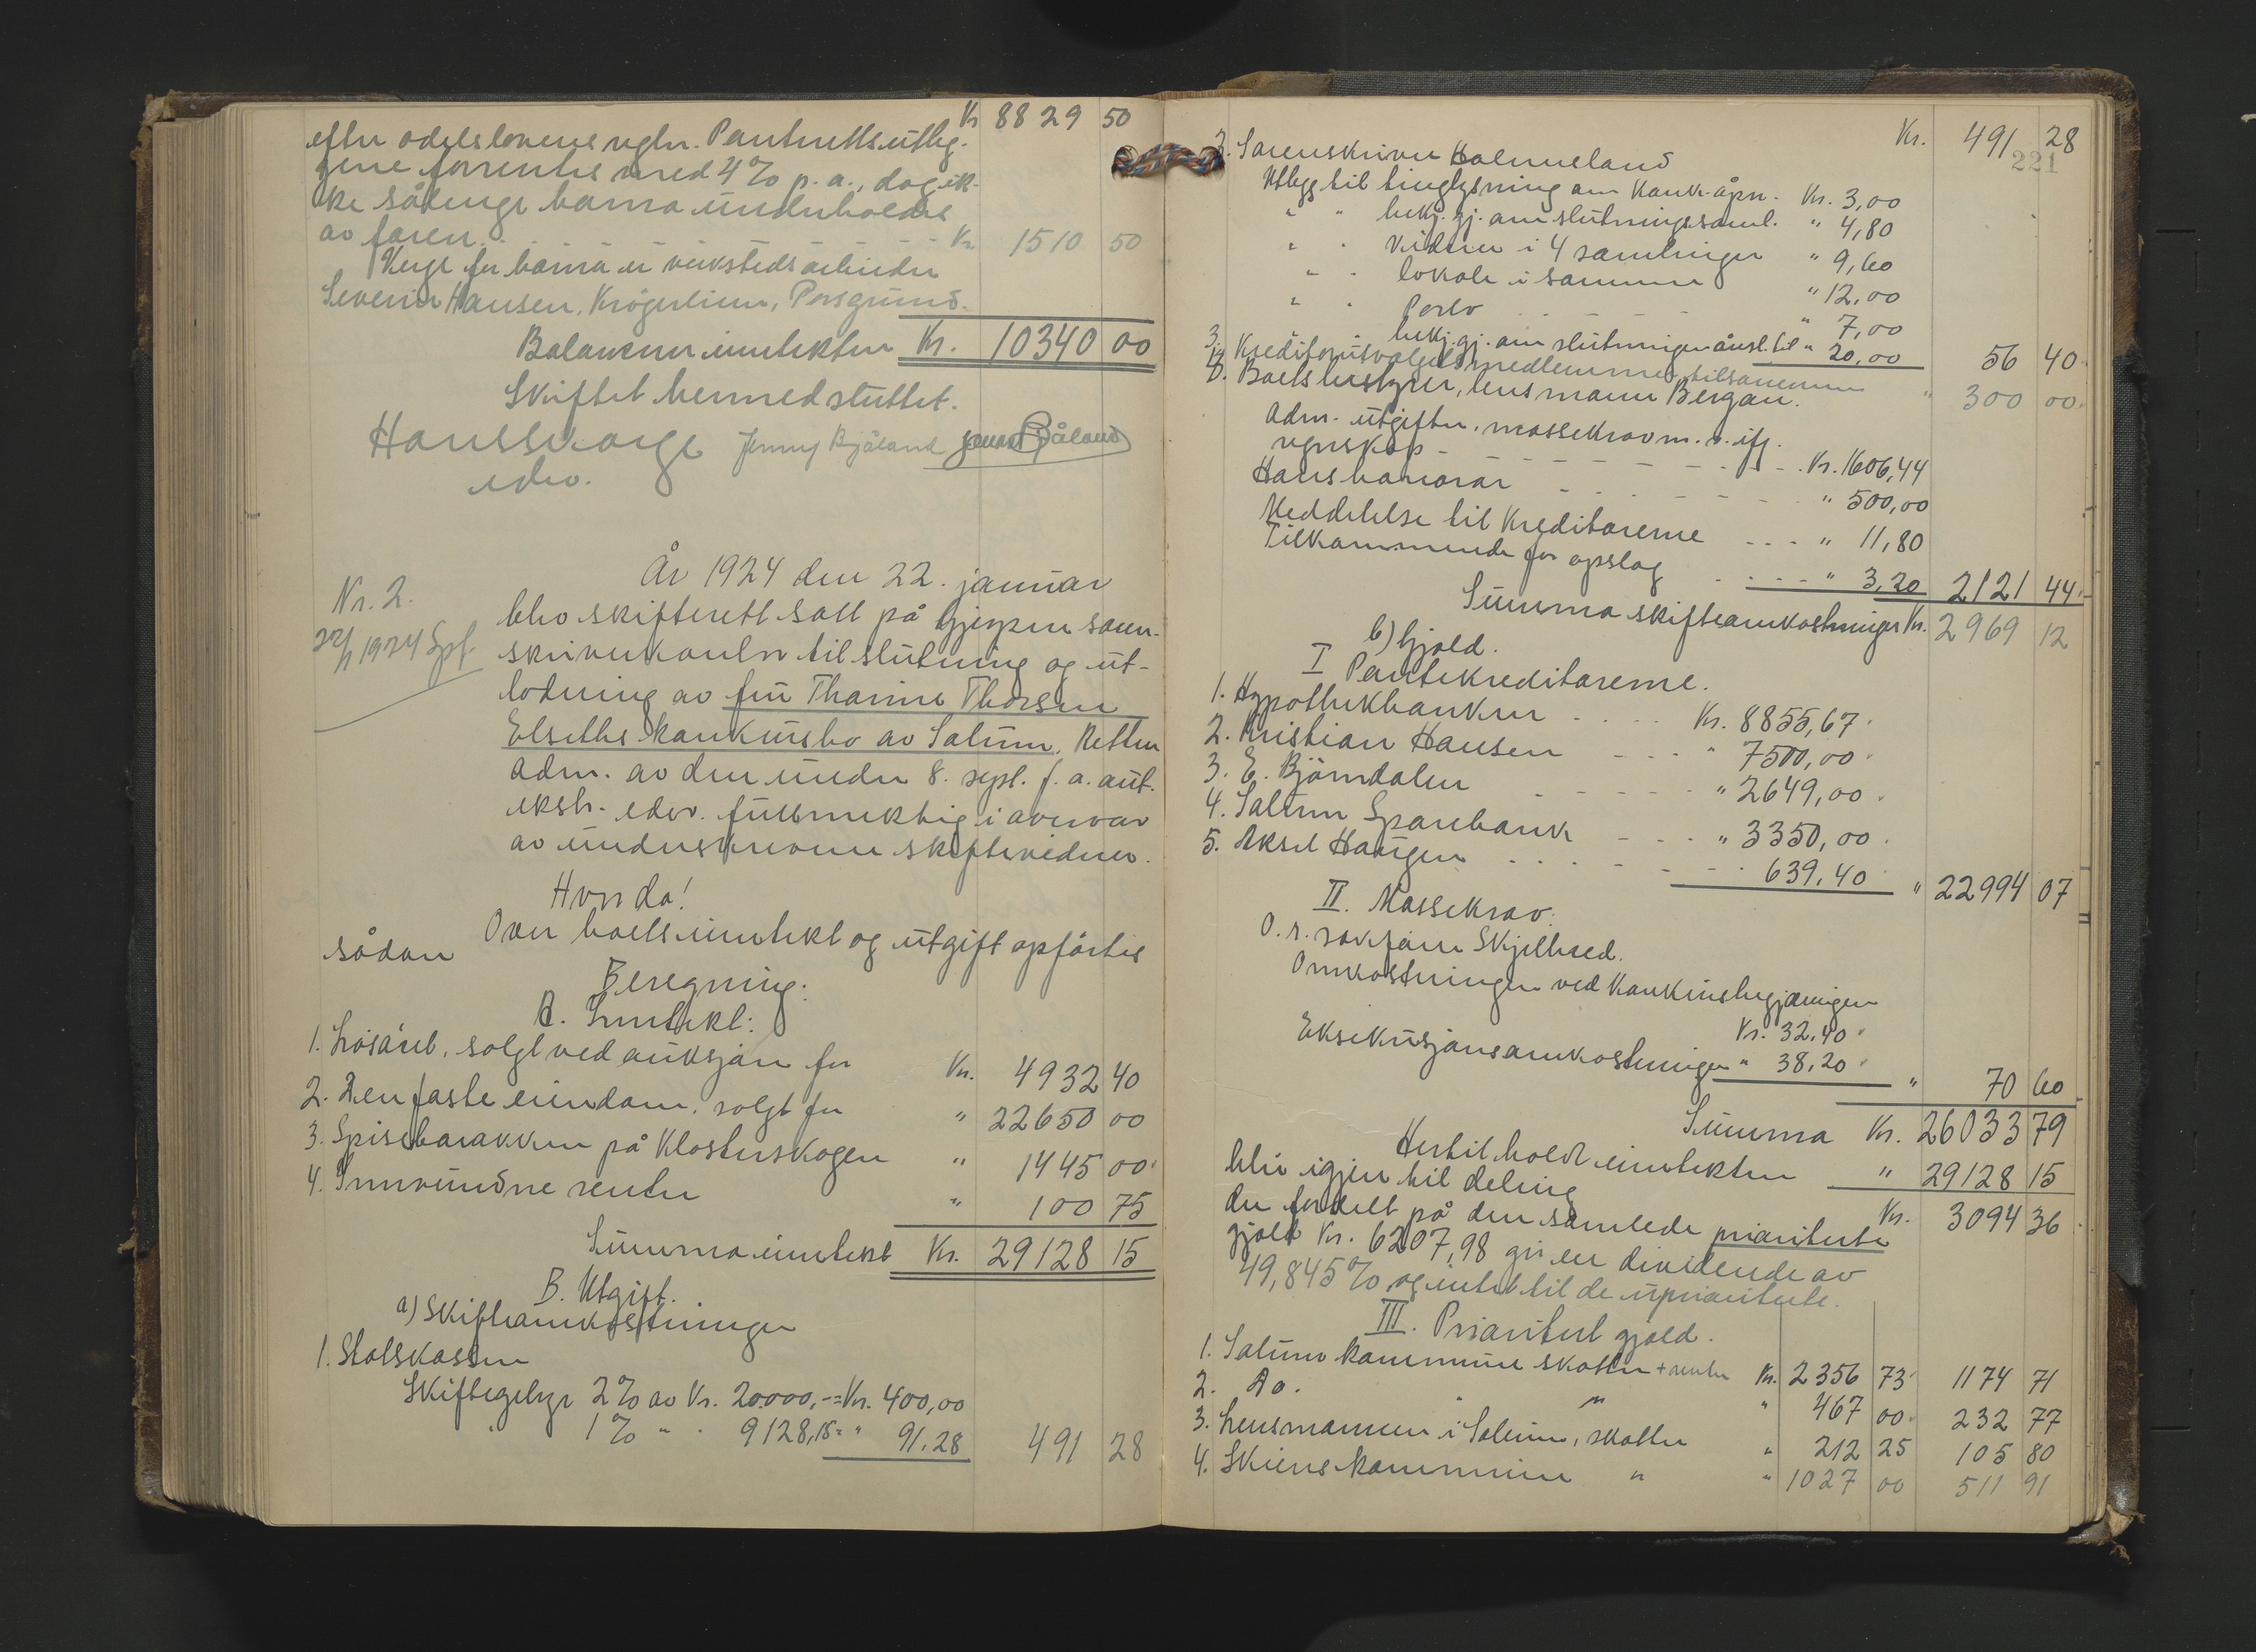 Kr 8829 50
efter odelslovens regler. Panterettsutleg-
gene forrentes med 4% p.a., dog ik-
ke sålenge barna underholdes
av faren. Kr. 1510 50
Verge for barna er verkstedsarbeider
Severin Hansen, Krøgerlien, Porsgrund.
Balanserer inntekten Kr. 10340 00
Skiftet hermed sluttet.
Hanssvarge Jenny Bjåland
edsv.
Nr. 2.
22/1 1924 Spf.
År 1924 den 22. januar
blev skifterett satt på Gjerpen soren-
skriverkontor til slutning og ut-
lodning av fru Tharine Thorsen
Elseths konkursbo av Solum. Retten
adm. av den under 8. sept. f.a. aut.
ekstr. edsv. fullmektig i overvær
av underskrevne skiftevidner.
Hvorda!
Over boets inntekt og utgift opførtes
sådan
Beregning:
A. Inntekt:
1. Løsøret, solgt ved auksjon for Kr. 4932 40
2. Den faste eiendom, solgt for " 22650 00
3. Spisebarakken på Klosterskogen " 1445 00
4. Innvundne renter " 100 75
Summa inntekt Kr. 29128 15
B. Utgift.
a) Skifteomkostninger
1. Statskassen
Skiftegebyr 2% av Kr. 20.000,- = Kr. 400,00
1% " " 9128,15 = " 91.28 491 28
Kr. 491 28
221
2. Sorenskriver Holmeland
Utlegg til tinglysning om konk. åpn. Kr. 3,00
" " bekj.gj. om slutningssaml. " 4,80
" " vidner i 4 samlinger " 9,60
" " lokale i samme " 12,00
" " Porto " 7,00
bekj.gj. om slutningen ansl. til " 20,00 56 40
3. Kreditorutvalgets medlemmer tilsammen " 300 00
4. Boets bestyrer, lensmann Bergan.
Adm. utgifter, massekrav m.v. ifg.
regnskap Kr. 1606,44
Hans honorar " 500,00
Meddelelse til kreditorerne " 11,80
Tilkommende for opslag " 3,20 2121 44
Summa skifteomkostninger Kr. 2969 12
b) Gjeld.
I Pantekreditorerne.
1. Hypothekbanken Kr. 8855,67
2. Kristian Hansen " 7500,00
3. E. Bjørndalen " 2649,00
4. Solum Sparebank " 3350,00
5. Aksel Haugen 639,40 " 22994 07
II. Massekrav:
O.r. sakfører Skjelbred.
Omkostninger ved konkursbegjæringen
Kr. 32,40
Eksekusjonsomkostninger " 38,20 " 70 60
Summa Kr. 26033 79
Hertil holdt inntekten " 29128 15
blir igjen til deling Kr. 3094 36
der fordelt på den samlede prioriterte
gjeld Kr. 6207,98 gir en dividende av
49,845% og intet til de uprioriterte.
III. Prioritert gjeld.
1. Solum kommune skatter + renter Kr. 2356 73 1174 71
2. Do. " " 467 00 232 77
3. Lensmannen i Solum, skatter " 212 25 105 80
4. Skiens kommune " " 1027 00 511 91